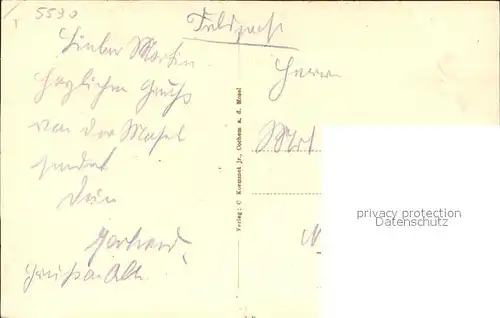 5530
Feldpost
Lieber Martin
herzlichen Gruß
von der Mosel
sendet
Dein
Gerhard
Gruß an Alle
Herrn
Verlag: C Kuemmet Jr., Cochem a. d. Mosel
privacy protection
Datenschutz